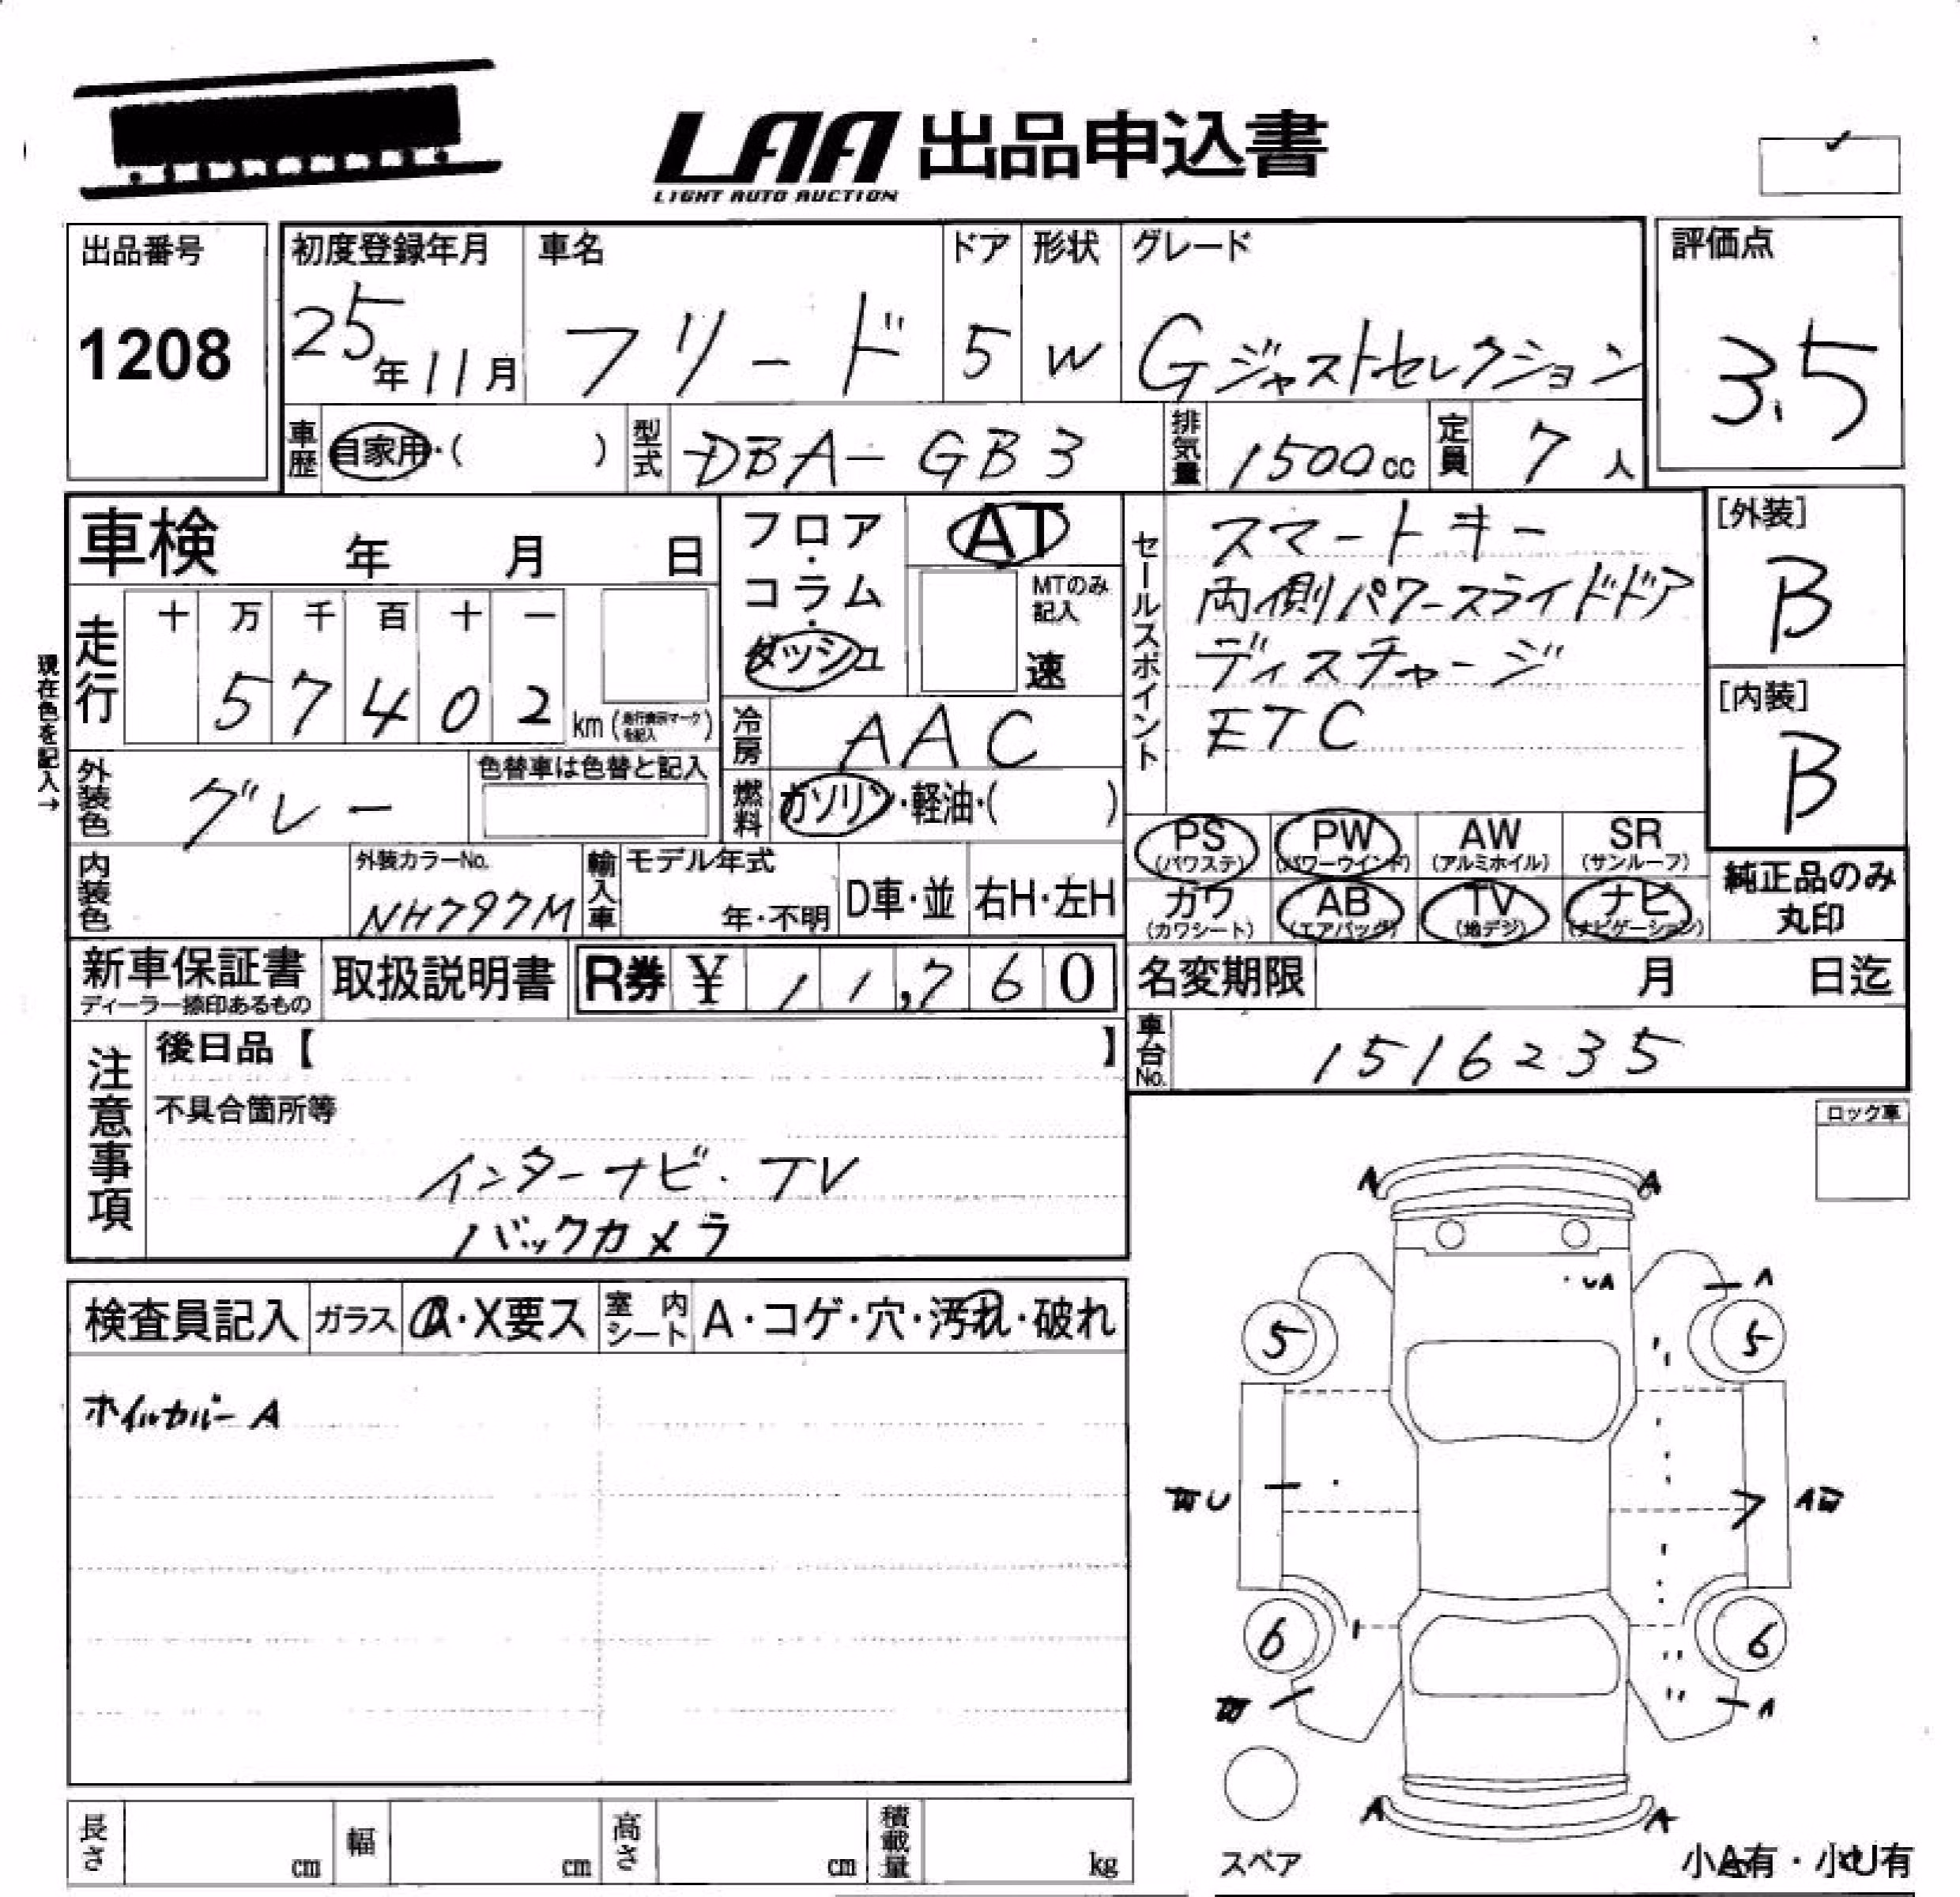 LAA 出品申込書
LIGHT AUTO AUCTION
出品番号
1208
初度登録年月
25年11月
車名
フリード
ドア
5
形状
W
グレード
Gジャストセレクション
評価点
3.5
車歴
自家用・( )
型式
DBA-GB3
排気量
1500cc
定員
7人
車検 年 月 日
フロア・コラム・ダッシュ
AT
MTのみ記入
速
セールスポイント
スマートキー
両側パワースライドドア
ディスチャージ
ETC
[外装]
B
[内装]
B
現在色を記入→
走行
十 万 千 百 十 一
5 7 4 0 2
km (走行表示マークを記入)
冷房
AAC
外装色
グレー
色替車は色替と記入
燃料
ガソリン・軽油・( )
PS (パワステ)
PW (パワーウインド)
AW (アルミホイル)
SR (サンルーフ)
カワ (カワシート)
AB (エアバッグ)
TV (地デジ)
ナビ (ナビゲーション)
純正品のみ丸印
内装色
外装カラーNo.
NH797M
輸入車
モデル年式
年・不明
D車・並
右H・左H
新車保証書
ディーラー捺印あるもの
取扱説明書
R券 ¥ 11,760
名変期限 月 日迄
車台No.
1516235
注意事項
後日品【 】
不具合箇所等
インターナビ・TV
バックカメラ
ロック車
検査員記入
ガラス
A・X要ス
室内シート
A・コゲ・穴・汚れ・破れ
ホイルカバーA
A A
UA
A
5 5
U
A
6 6
A
A A
スペア
小A有・小U有
長さ cm
幅 cm
高さ cm
積載量 kg